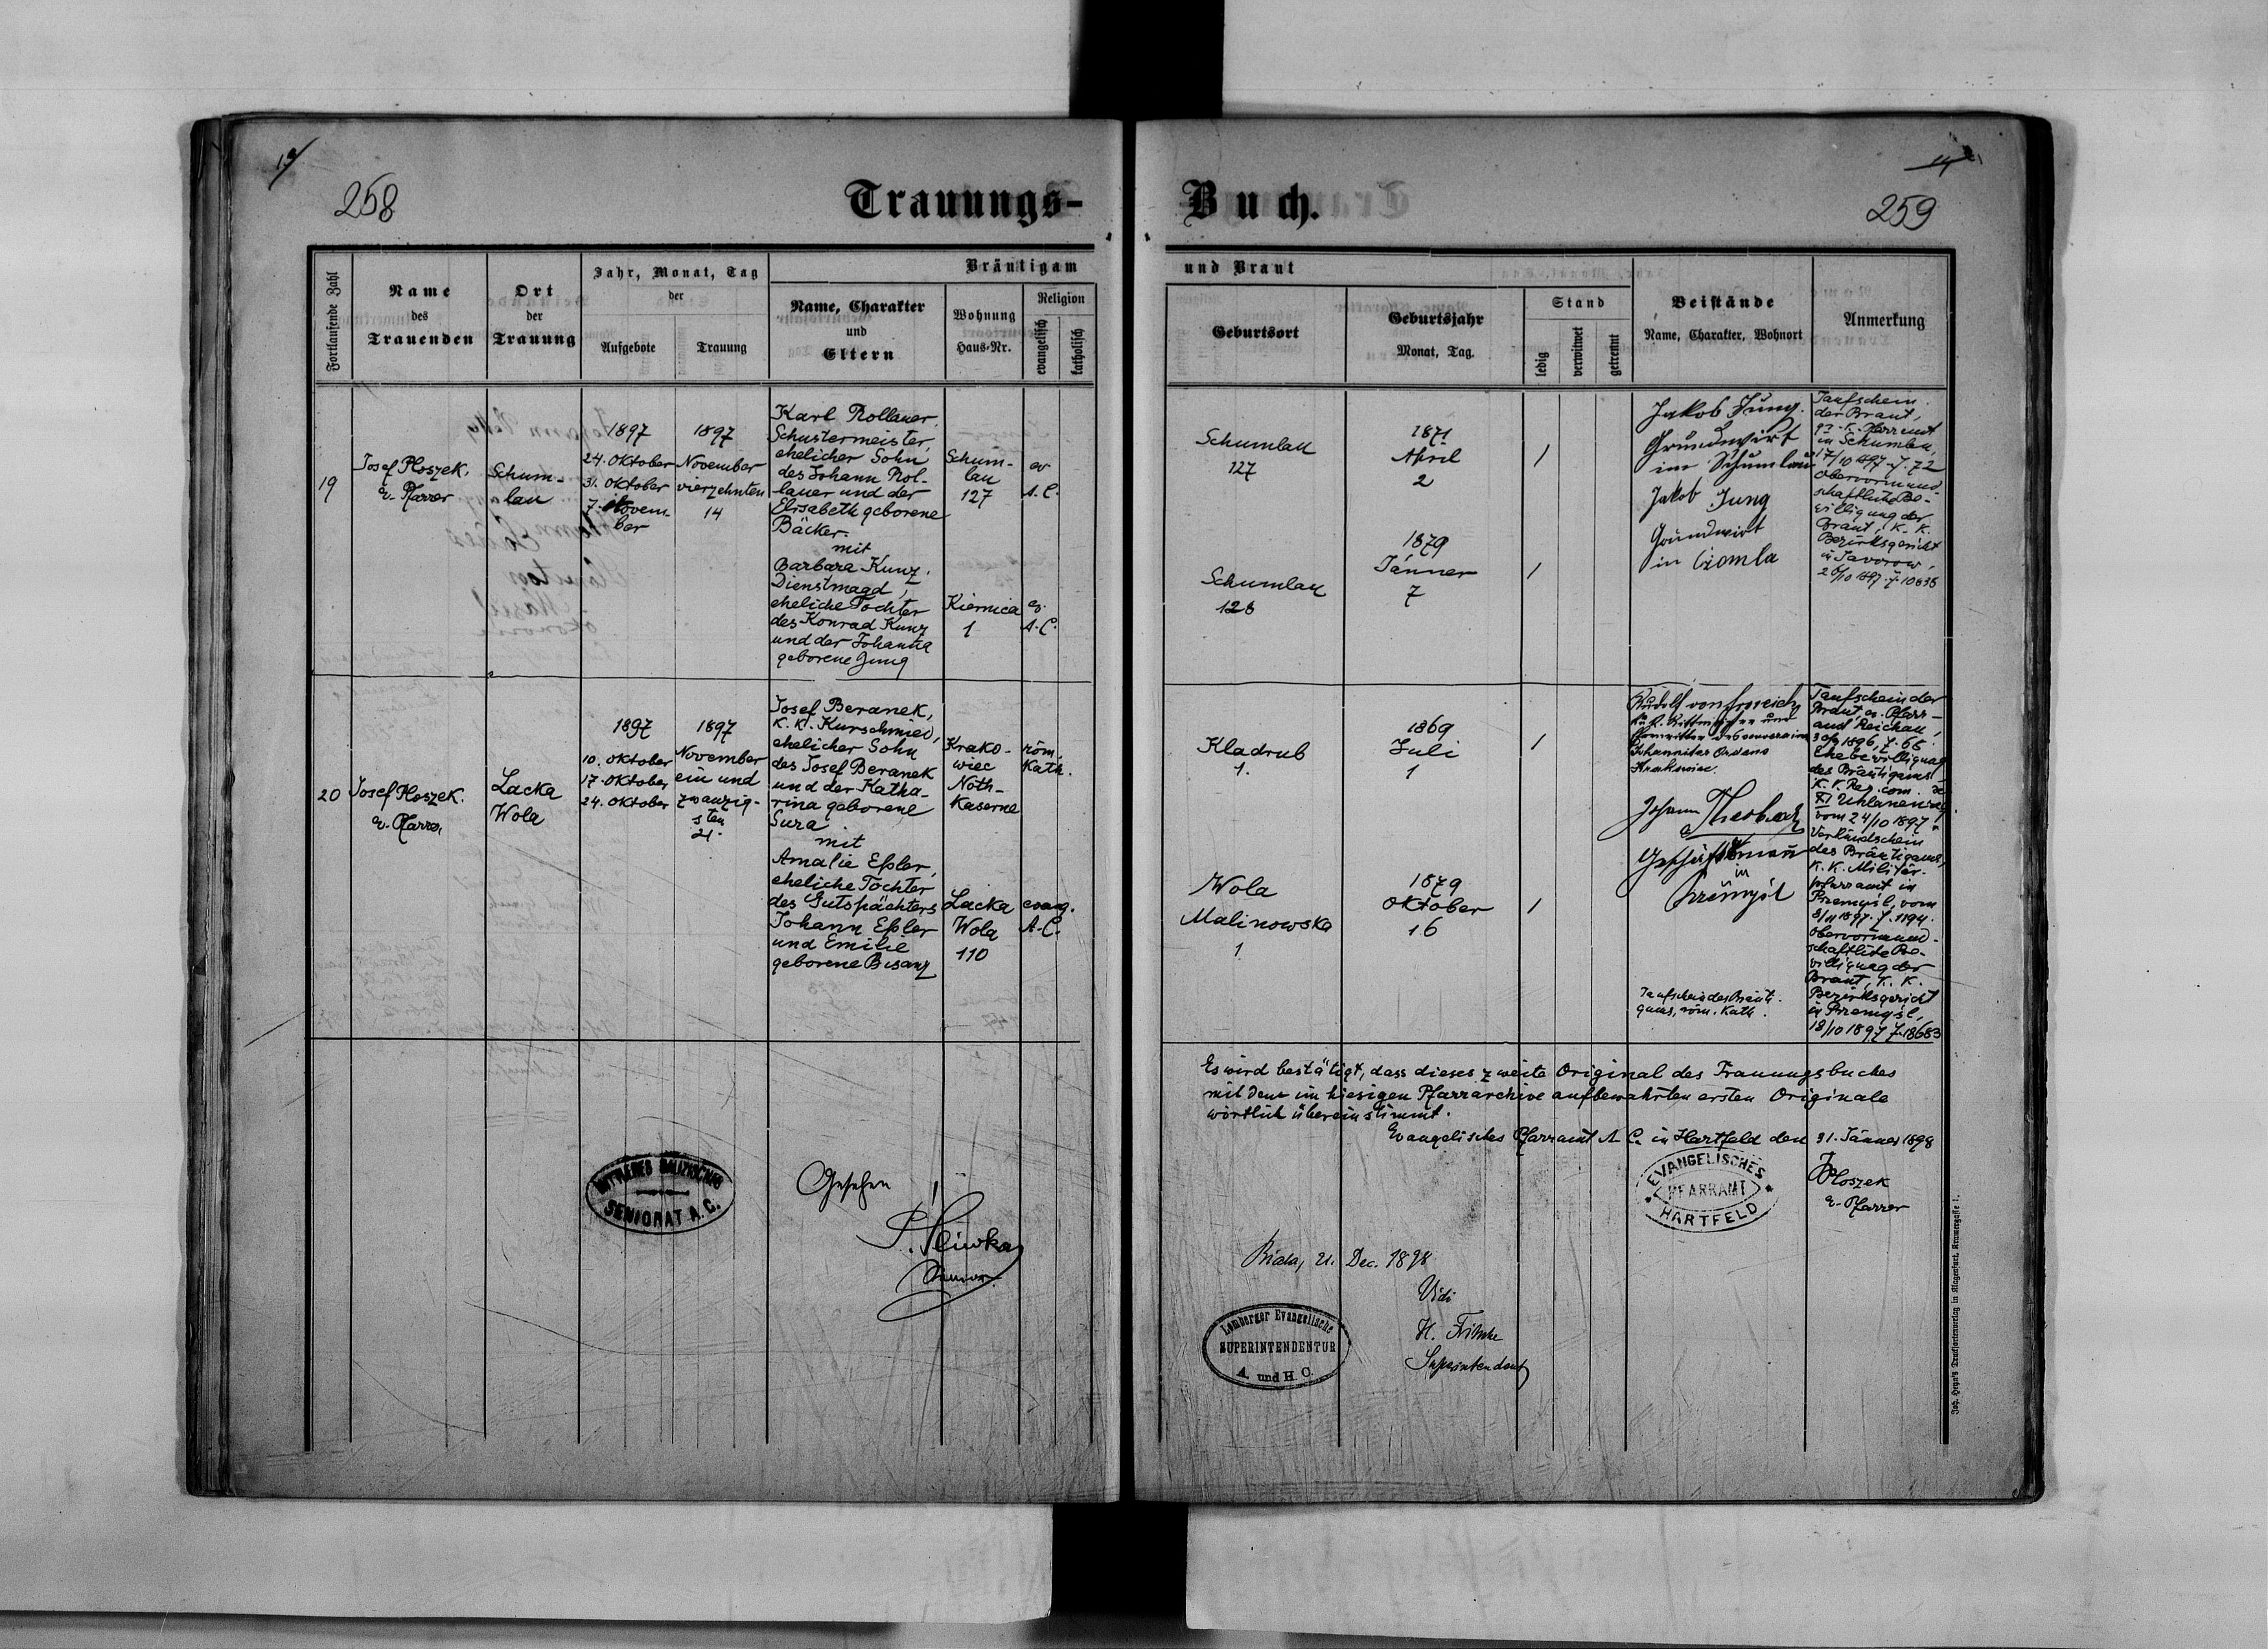 258
Trauungs-
Fortlaufende Zahl
Name
des
Trauenden
Ort
der
Trauung
Jahr, Monat, Tag
der
Aufgebote
Trauung
Bräutigam
Name, Charakter
und
Eltern
Wohnung
Haus-Nr.
Religion
evangelisch
katholisch
19
Josef Ploszek,
ev. Pfarrer
Schum-
lau
1897
24. Oktober
31. Oktober
7. Novem-
ber
1897
November
vierzehnten
14
Karl Rollauer,
Schustermeister,
ehelicher Sohn
des Johann Rol-
lauer und der
Elisabeth geborene
Bäcker.
mit
Barbara Kunz,
Dienstmagd,
eheliche Tochter
des Konrad Kunz
und der Johanna
geborene Jung
Schum-
lau
127
ev
A. C.
Kiernica
1
ev.
A. C.
20
Josef Ploszek.
ev. Pfarrer
Lacka
Wola
1897
10. Oktober
17. Oktober
24. Oktober
1897
November
ein und
zwanzig-
sten
21.
Josef Beranek,
K. K. Kurschmied,
ehelicher Sohn
des Josef Beranek
und der Katha-
rina geborene
Sura
mit
Amalie Eßler,
eheliche Tochter
des Gutspächters
Johann Eßler
und Emilie
geborene Bisanz
Krako-
wiec
Noth-
Kaserne
röm.
Kath.
Lacka
Wola
110
evang.
A. C.
MITTLERES GALIZISCHES
SENIORAT A. C.
Gesehen
Senior
259
Buch.
und Braut
Geburtsort
Geburtsjahr
Monat, Tag.
Stand
ledig
verwitwet
getrennt
Beistände
Name, Charakter, Wohnort
Anmerkung
Schumlau
127
1871
April
2
/
Jakob Jung.
Grundwirt
in Schumlau
Jakob Jung
Grundwirt
in
Taufschein
der Braut,
Pfarramt
in Schumlau,
17/10 1897. Z. 72
Obervormund-
schaftliche Be-
willigung der
Braut, K. K.
Bezirksgericht
in Javorow,
Schumlau
128
1879
Jänner
7
/
Kladrub
1.
1869
Juli
1
/
Rudolf von
K. K. Rittmeister und
Johanniter Ordens
Johann
Geschäftsmann
in
Taufschein des Bräuti-
gams, röm. Kath.
Taufschein der
Braut, ev. Pfarr-
amt Reichau,
1896, Z. 66.
Ehebewilligung
des Bräutigams
K. K. Reg. com.
Uhlanen
vom 24/10 1897
Verkündschein
des Bräutigams,
K. K. Militär-
pfarramt in
Przemysl, vom
8/11 1897. Z. 1194.
Obervormund-
schaftliche Be-
willigung der
Braut, K. K.
Bezirksgericht
in Przemysl,
18/10 1897 Z. 18683
Wola
Malinowska
1
1879
Oktober
16
/
Es wird bestätigt, dass dieses zweite Original des Trauungsbuches
mit dem im hiesigen Pfarrarchive aufbewahrten ersten Originale
wörtlich übereinstimmt.
Evangelisches Pfarramt A. C. in Hartfeld den 31. Jänner 1898
EVANGELISCHES
PFARRAMT
HARTFELD
JPloszek
ev. Pfarrer
Biala, 21. Dec. 1898
Vidi
Superintendent
Lemberger Evangelische
SUPERINTENDENTUR
A. und H. C.